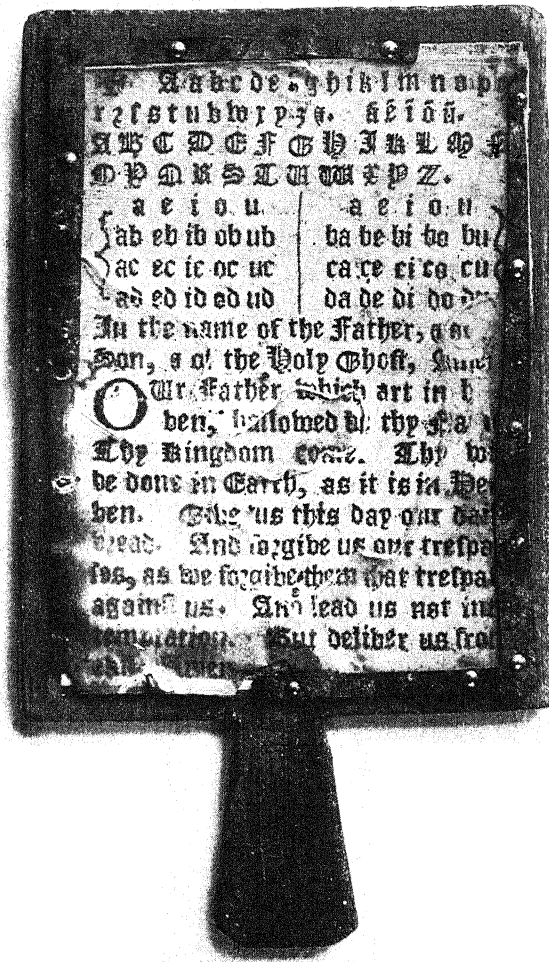 A a b c d e f g h i k l m n o p
r ꝛ ſ s t u b w x y z &. ã ẽ ĩ õ ũ.
A B C D E F G H I K L M
O P Q R S T U W X Y Z.
a e i o u a e i o u
ab eb ib ob ub ba be bi bo bu
ac ec ic oc uc ca ce ci co cu
ad ed id od ud da de di do
In the name of the Father, &
Son, & of the Holy Ghoſt,
OUr Father which art in
ven, hallowed be thy
Thy Kingdom come. Thy
be done in Earth, as it is in
ven. Give us this day our
bread. And foꝛgive us our treſpa
ſes, as we foꝛgive them that treſpa
againſt us. And lead us not
temptation. But deliver us